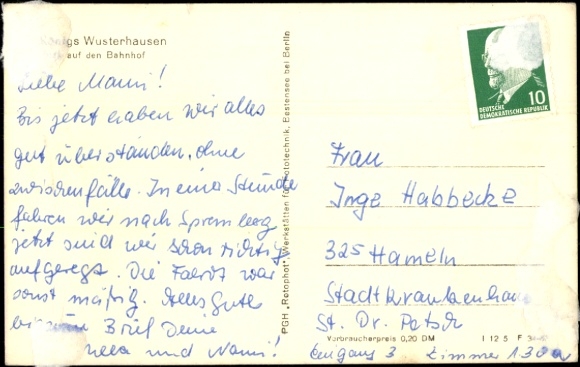 Königs Wusterhausen
auf den Bahnhof
Liebe Mami!
Bis jetzt haben wir alles
gut überstanden, ohne
zwischenfälle. In einer Stunde
fahren wir nach Spremberg
jetzt sind wir schon richtig
aufgeregt. Die Fahrt war
sonst mäßig. Alles Gute
Brief Deine
und Nanni!
PGH "Rotophot", Werkstätten für Fototechnik, Bestensee bei Berlin
10
DEUTSCHE
DEMOKRATISCHE REPUBLIK
Frau
Inge Habbecke
325 Hameln
Stadtkrankenhaus
St. Dr. Potsch
Verbraucherpreis 0,20 DM
I 12 5 F
Eingang 3 Zimmer 130a